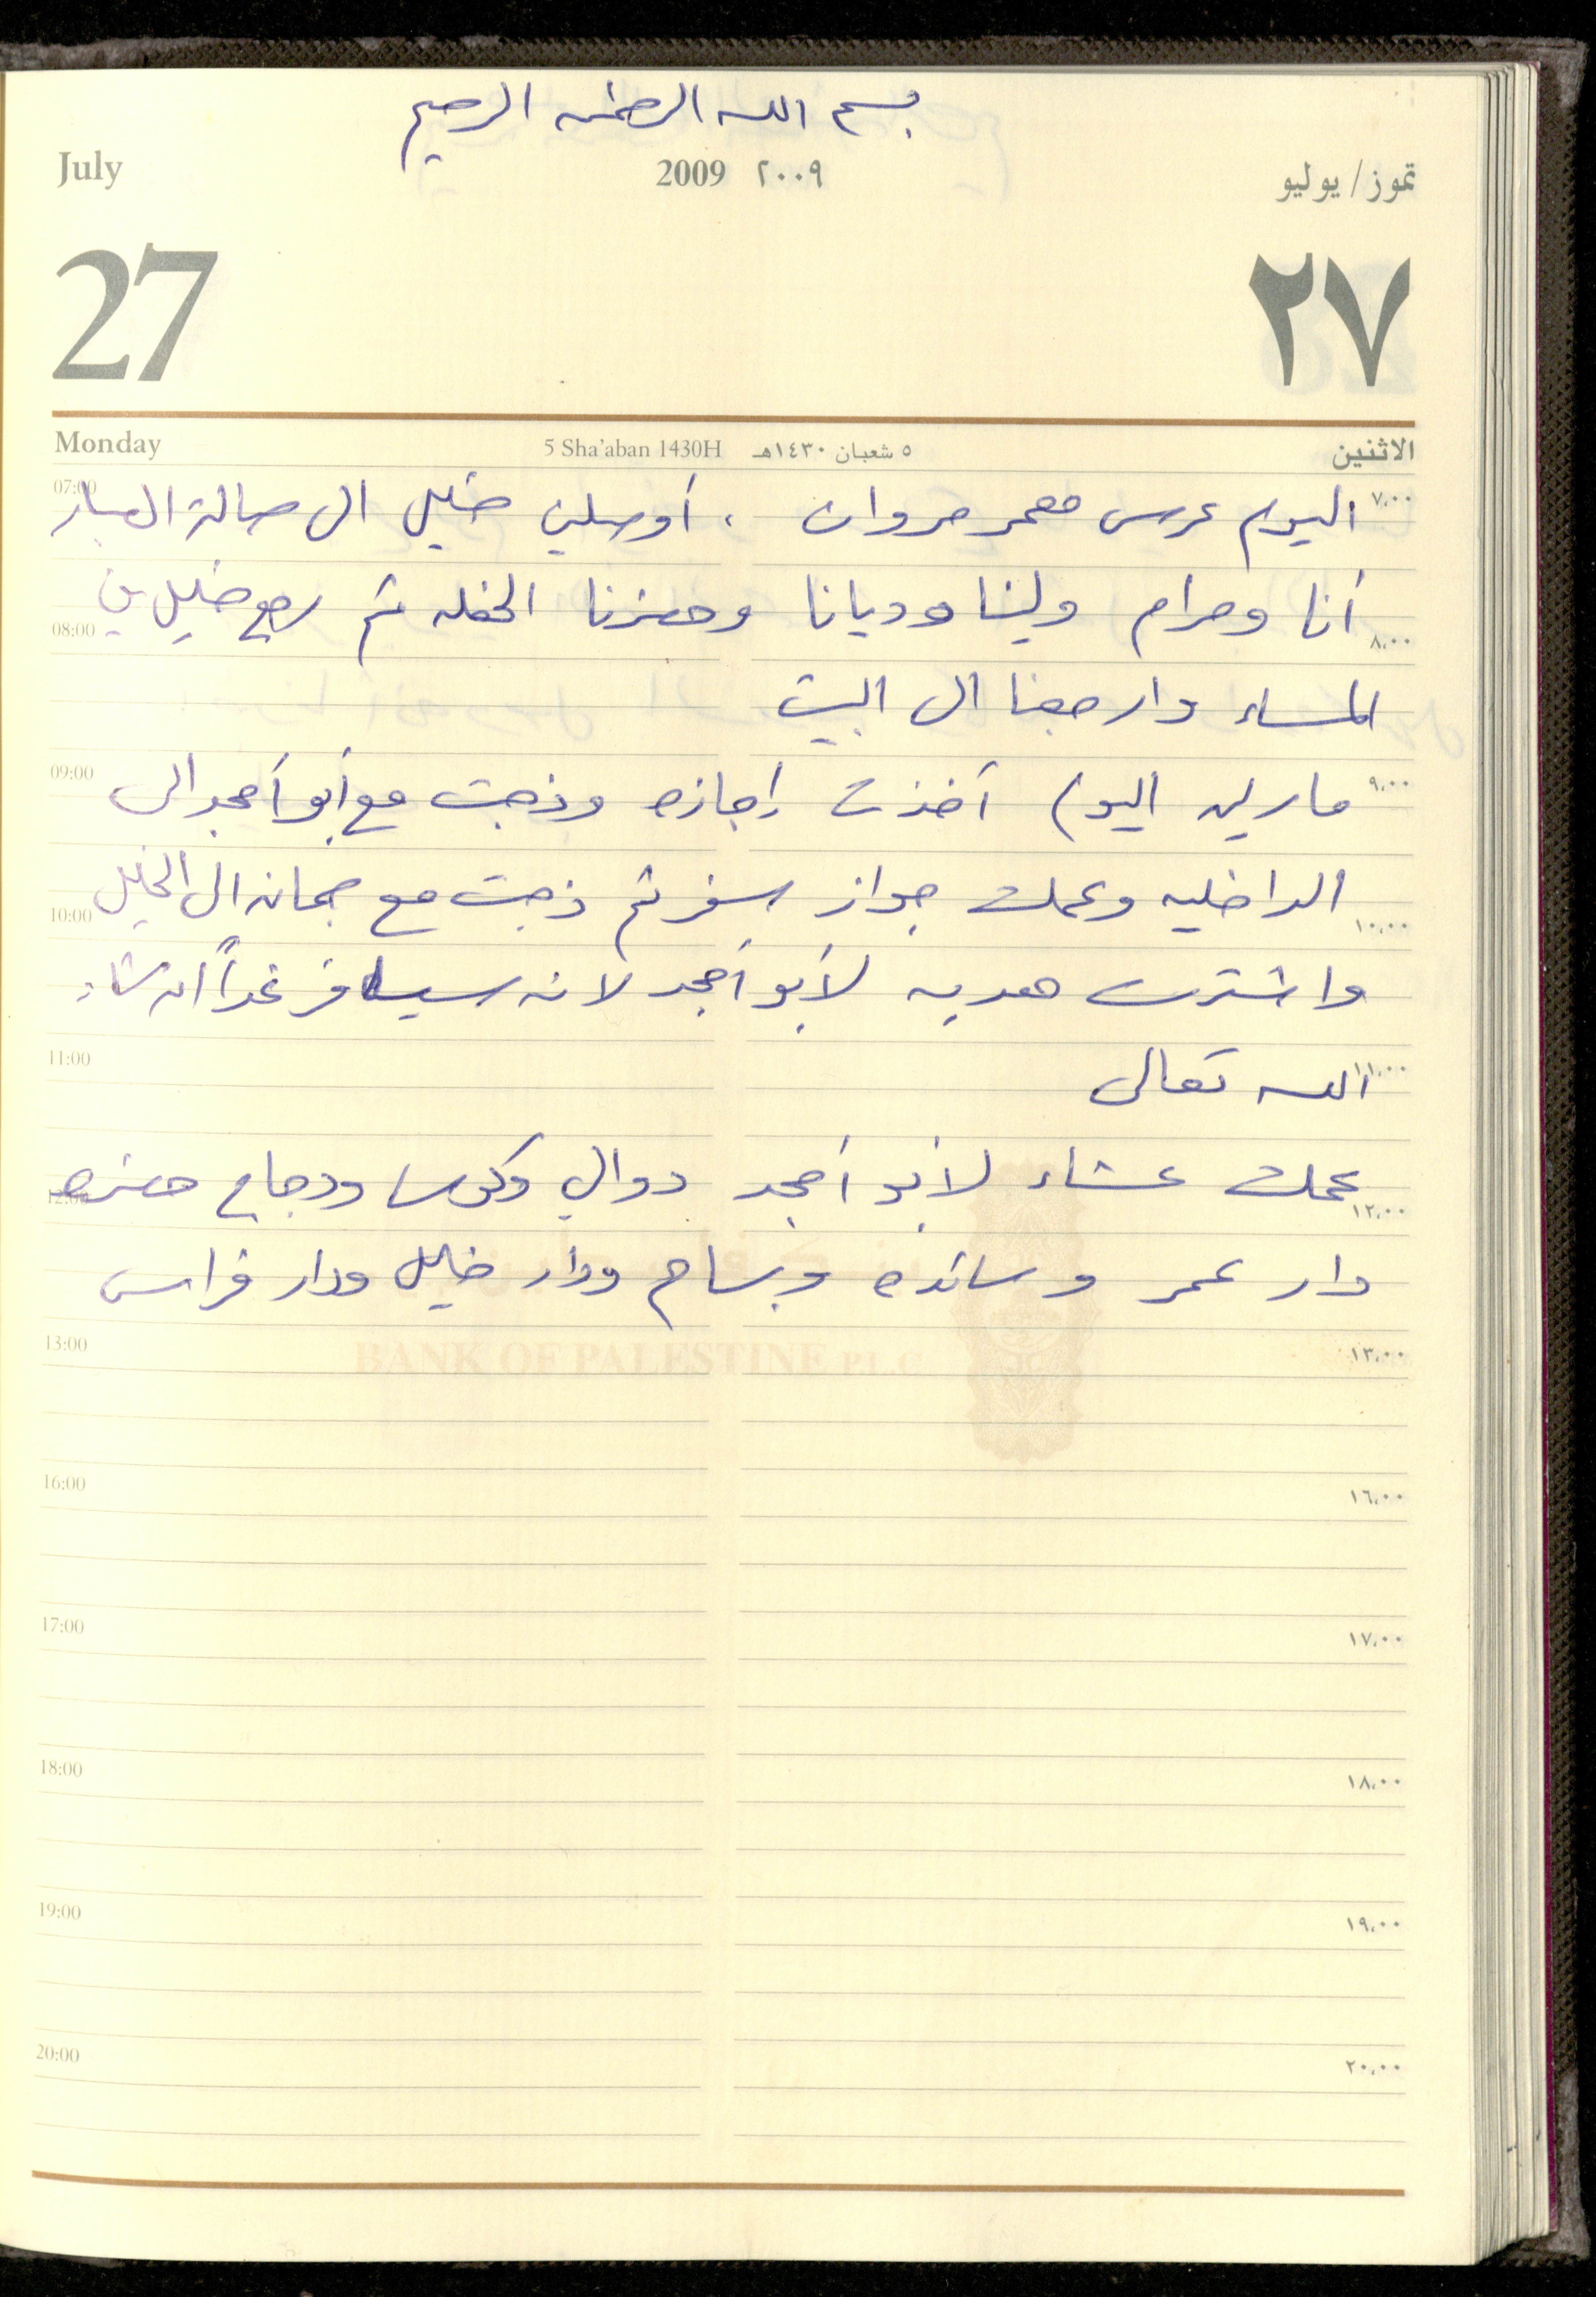 بسم الله الرحمن الرحيم
July 2009 ٢٠٠٩ تموز/يوليو
27 ٢٧
Monday 5 Sha'aban 1430H ٥ شعبان ١٤٣٠هـ الاثنين
07:00 ٧،٠٠
اليوم عرس معمر مروان ، أوصلني خليل الى صالة
أنا ومرام ولينا وديانا وحضرنا الحفله ثم رجع خليل في
08:00 ٨،٠٠
المساء وارجعنا الى البيت
09:00 ٩،٠٠
مارلين اليوم أخذت إجازه وذهبت مع أبو أمجد الى
الداخليه وعملت جواز سفر ثم ذهبت مع جمانه الى الخليل
10:00 ١٠،٠٠
واشترت هديه لأبو أمجد لانه سيسافر غداً ان شاء
11:00 ١١،٠٠
الله تعالى
عملت عشاء لأبو أمجد دوالي وكوسا ودجاج حضره
12:00 ١٢،٠٠
دار عمر وسائده وبسام ودار خليل ودار فراس
13:00 ١٣،٠٠
BANK OF PALESTINE P.L.C
16:00 ١٦،٠٠
17:00 ١٧،٠٠
18:00 ١٨،٠٠
19:00 ١٩،٠٠
20:00 ٢٠،٠٠